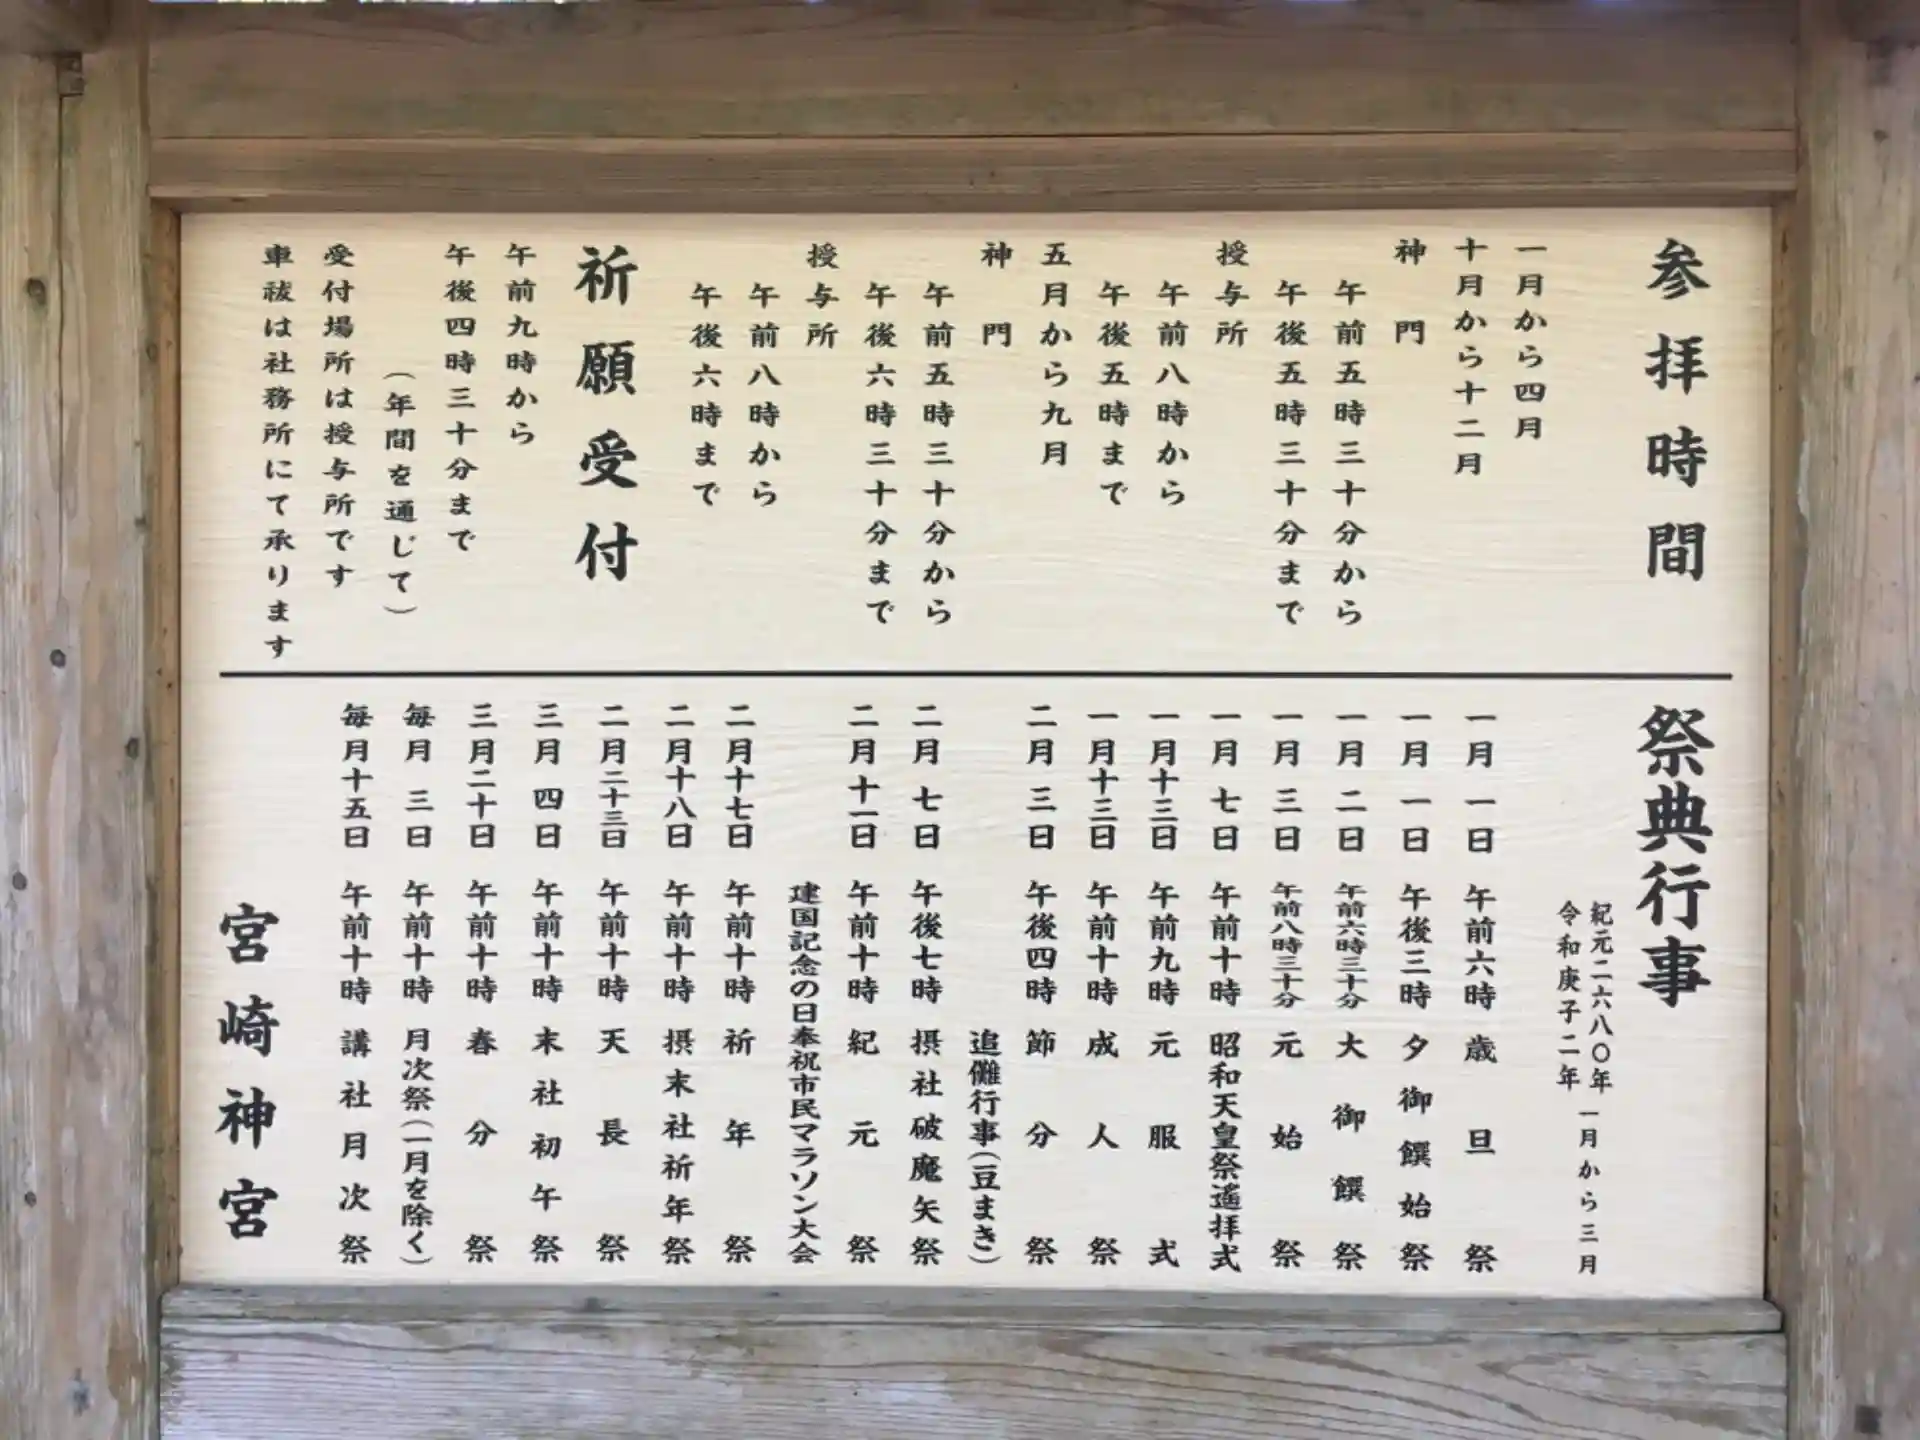 参拝時間
一月から四月
十月から十二月
神門
午前五時三十分から
午後五時三十分まで
授与所
午前八時から
午後五時まで
五月から九月
神門
午前五時三十分から
午後六時三十分まで
授与所
午前八時から
午後六時まで
祈願受付
午前九時から
午後四時三十分まで
（年間を通じて）
受付場所は授与所です
車祓は社務所にて承ります
祭典行事
紀元二六八〇年
令和庚子二年
一月から三月
一月一日 午前六時 歳旦祭
一月一日 午後三時 夕御饌始祭
一月二日 午前六時三十分 大御饌祭
一月三日 午前八時三十分 元始祭
一月七日 午前十時 昭和天皇祭遙拝式
一月十三日 午前九時 元服式
一月十三日 午前十時 成人祭
二月三日 午後四時 節分祭
追儺行事（豆まき）
二月七日 午後七時 摂社破魔矢祭
二月十一日 午前十時 紀元祭
建国記念の日奉祝市民マラソン大会
二月十七日 午前十時 祈年祭
二月十八日 午前十時 摂末社祈年祭
二月二十三日 午前十時 天長祭
三月四日 午前十時 末社初午祭
三月二十日 午前十時 春分祭
毎月三日 午前十時 月次祭（一月を除く）
毎月十五日 午前十時 講社月次祭
宮崎神宮